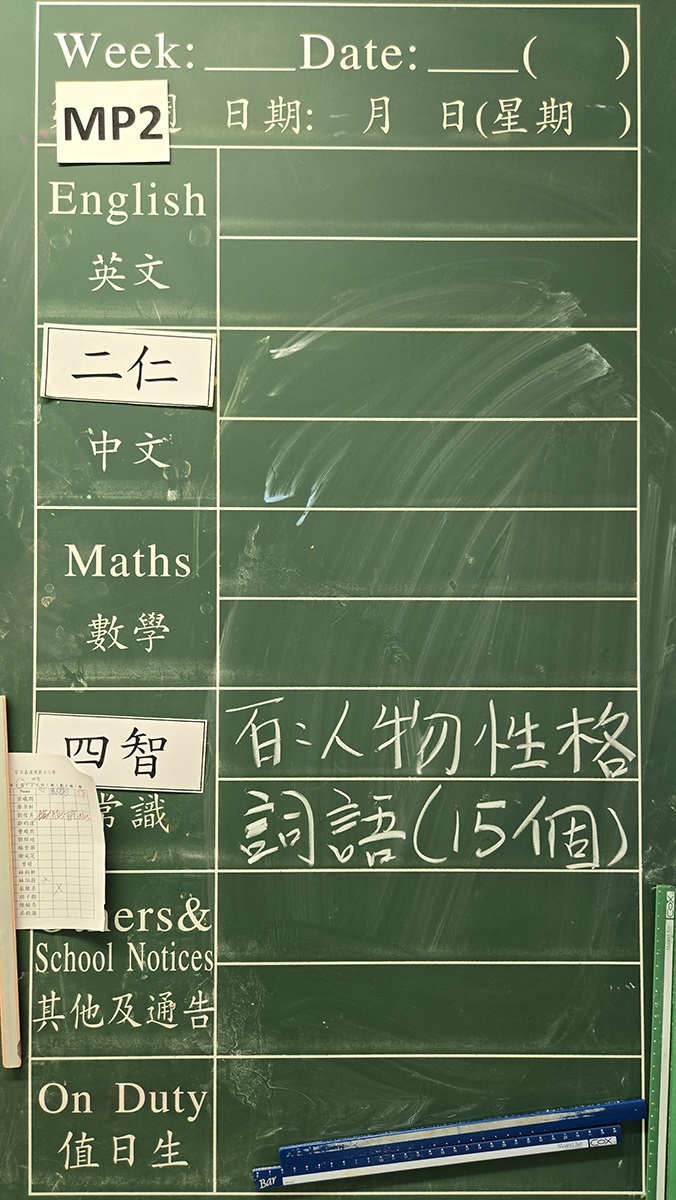 Week: ____ Date: ____ ( )
MP2 週 日期: 月 日(星期 )
English
英文
二仁
中文
Maths
數學
四智
百:人物性格
常識
詞語(15個)
Others&
School Notices
其他及通告
On Duty
值日生
Bar
COX
COX